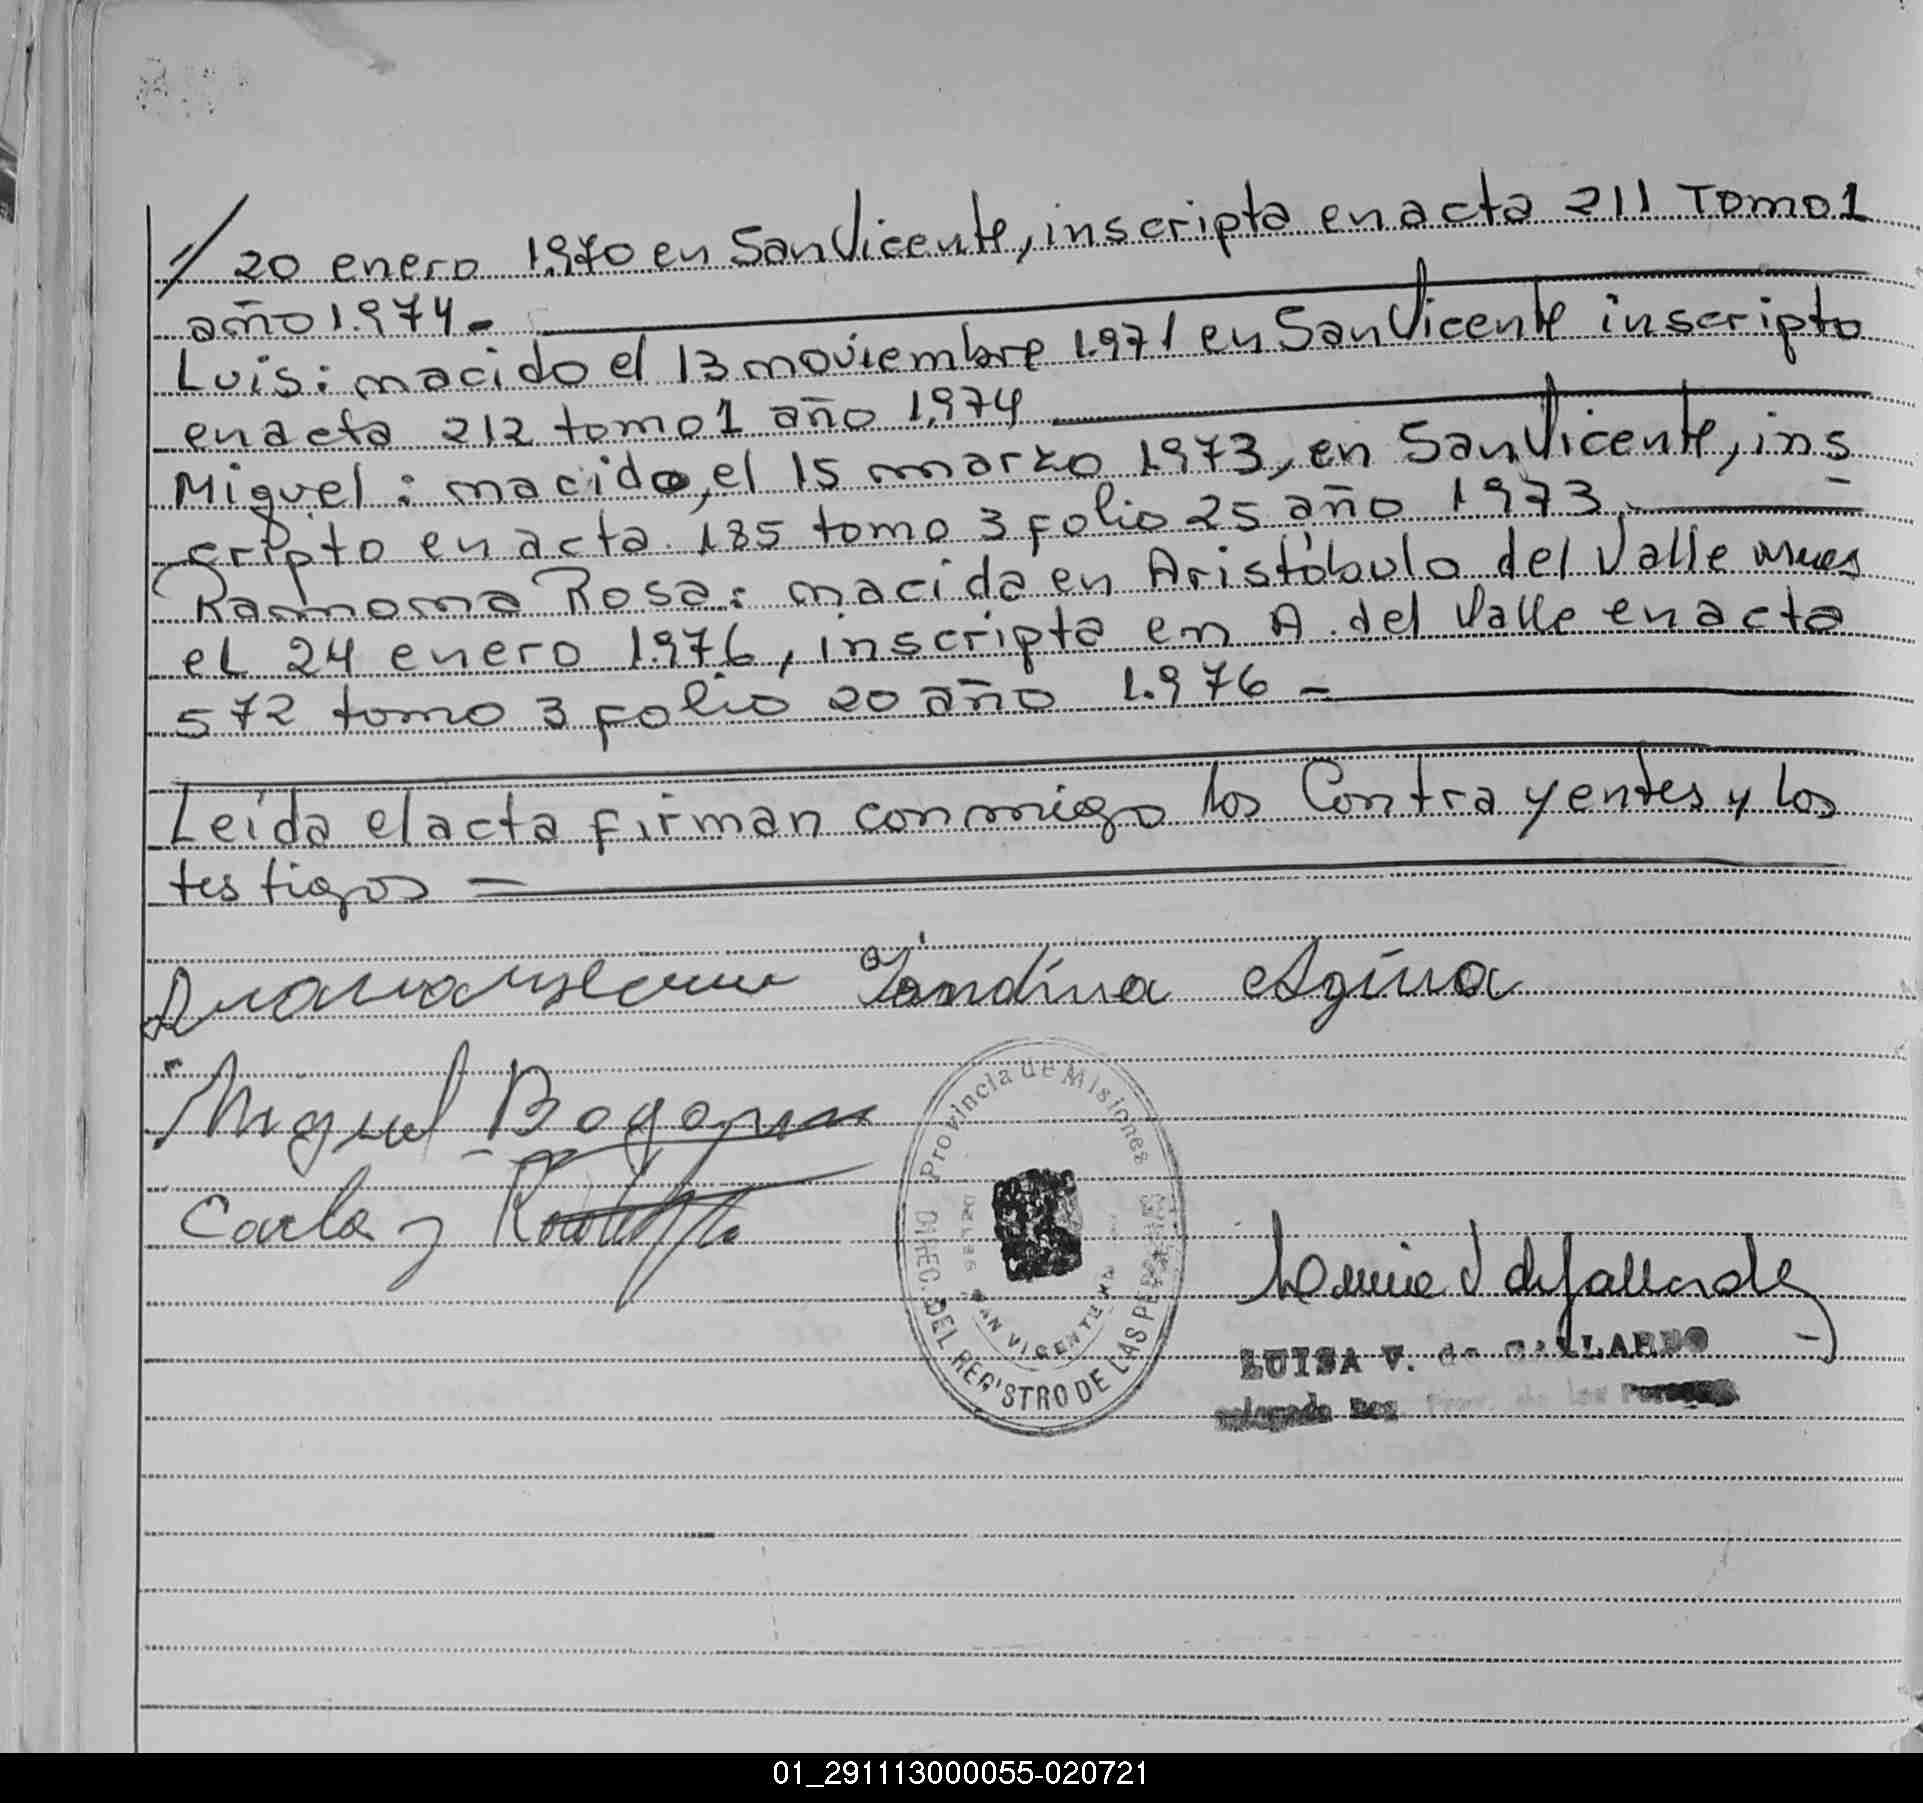 // 20 enero 1.970 en San Vicente, inscripta en acta 211 Tomo 1
año 1.974.-
Luis: nacido el 13 noviembre 1.971 en San Vicente inscripto
en acta 212 tomo 1 año 1.974
Miguel: nacido, el 15 marzo 1973, en San Vicente, ins
cripto en acta 185 tomo 3 folio 25 año 1973.
Ramona Rosa: nacida en Aristóbulo del Valle Mnes
el 24 enero 1.976, inscripta en A. del Valle en acta
572 tomo 3 folio 20 año 1.976 =
Leída el acta firman conmigo los Contrayentes y los
testigos =
Miguel
Carlos
Provincia de Misiones
DIREC. DEL REGISTRO DE LAS PERSONAS
SAN VICENTE
LUISA V. de GALLARDO
Delegada Reg. Prov. de las Personas
01_291113000055-020721